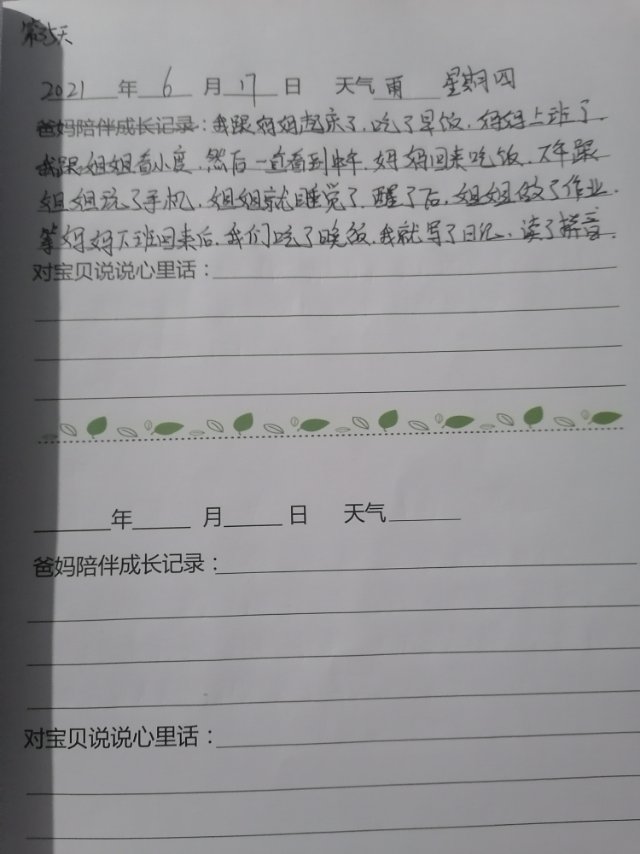 第35天
2021年6月17日 天气雨 星期四
爸妈陪伴成长记录：我跟妈妈起床了，吃了早饭，妈妈上班了
我跟姐姐看小度，然后一直看到中午，妈妈回来吃饭，下午跟
姐姐玩了手机，姐姐就睡觉了，醒了后，姐姐做了作业，
等妈妈下班回来后，我们吃了晚饭，我就写了日记，读了拼音．
对宝贝说说心里话：
年 月 日 天气
爸妈陪伴成长记录：
对宝贝说说心里话：